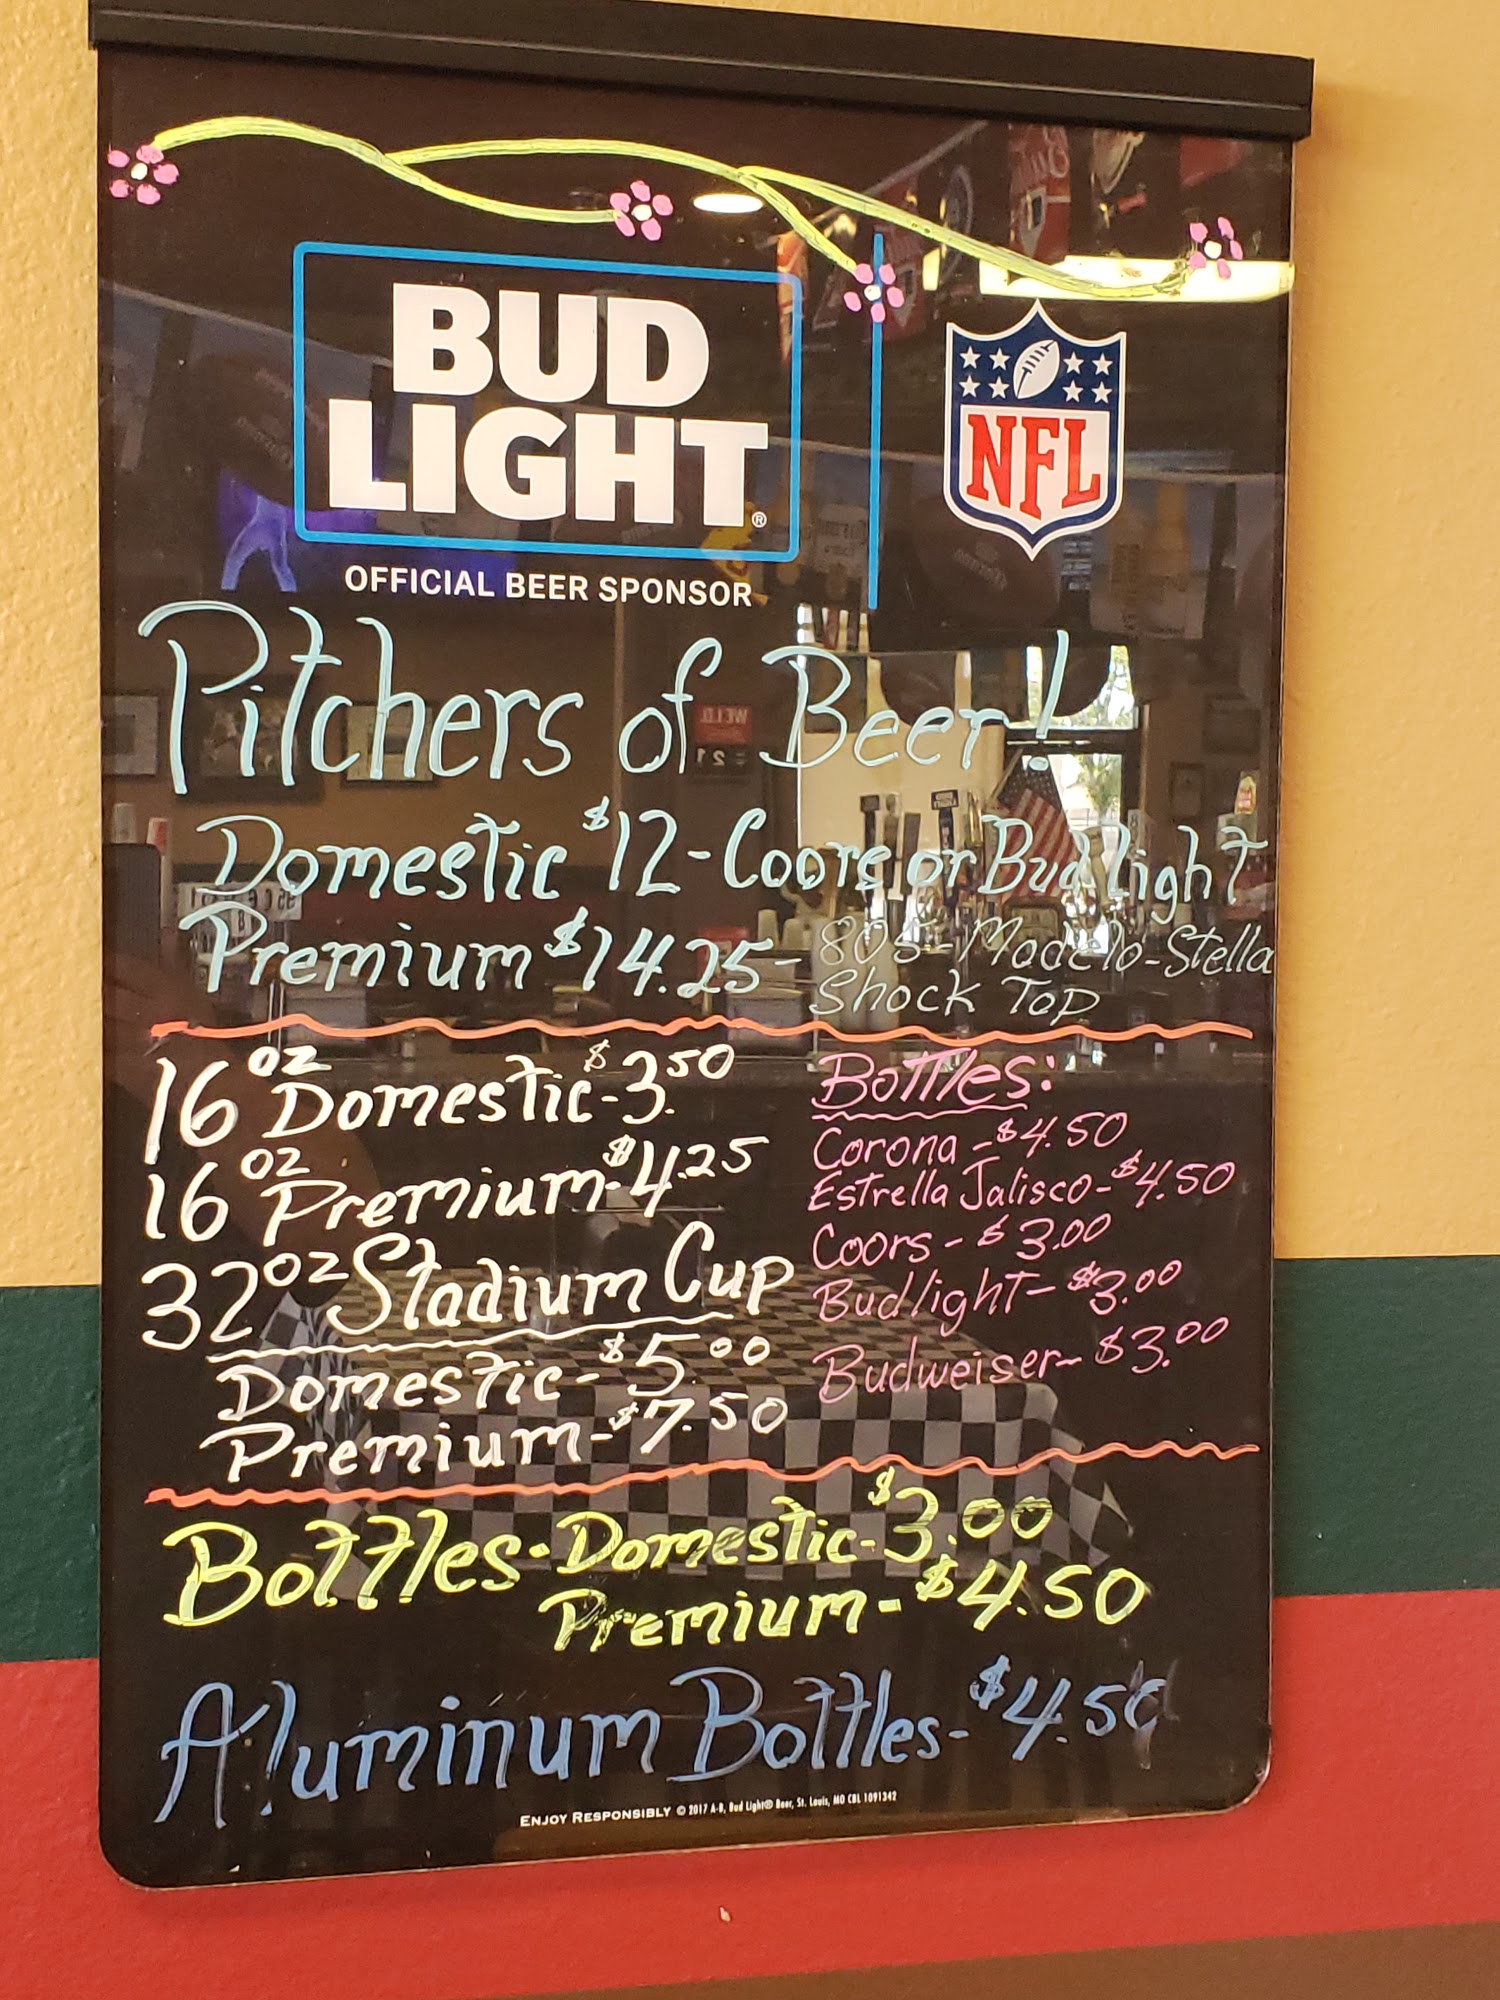 BUD
LIGHT®
NFL
OFFICIAL BEER SPONSOR
Pitchers of Beer!
Domestic $12 - Coors or Bud Light
Premium $14.25 - 805 - Modelo - Stella
Shock Top
16 oz Domestic - $3.50
16 oz Premium - $4.25
32 oz Stadium Cup
Domestic - $5.00
Premium - $7.50
Bottles:
Corona - $4.50
Estrella Jalisco - $4.50
Coors - $3.00
Budlight - $3.00
Budweiser - $3.00
Bottles - Domestic - $3.00
Premium - $4.50
Aluminum Bottles - $4.50
ENJOY RESPONSIBLY © 2017 A-B, Bud Light® Beer, St. Louis, MO CBL 1091342